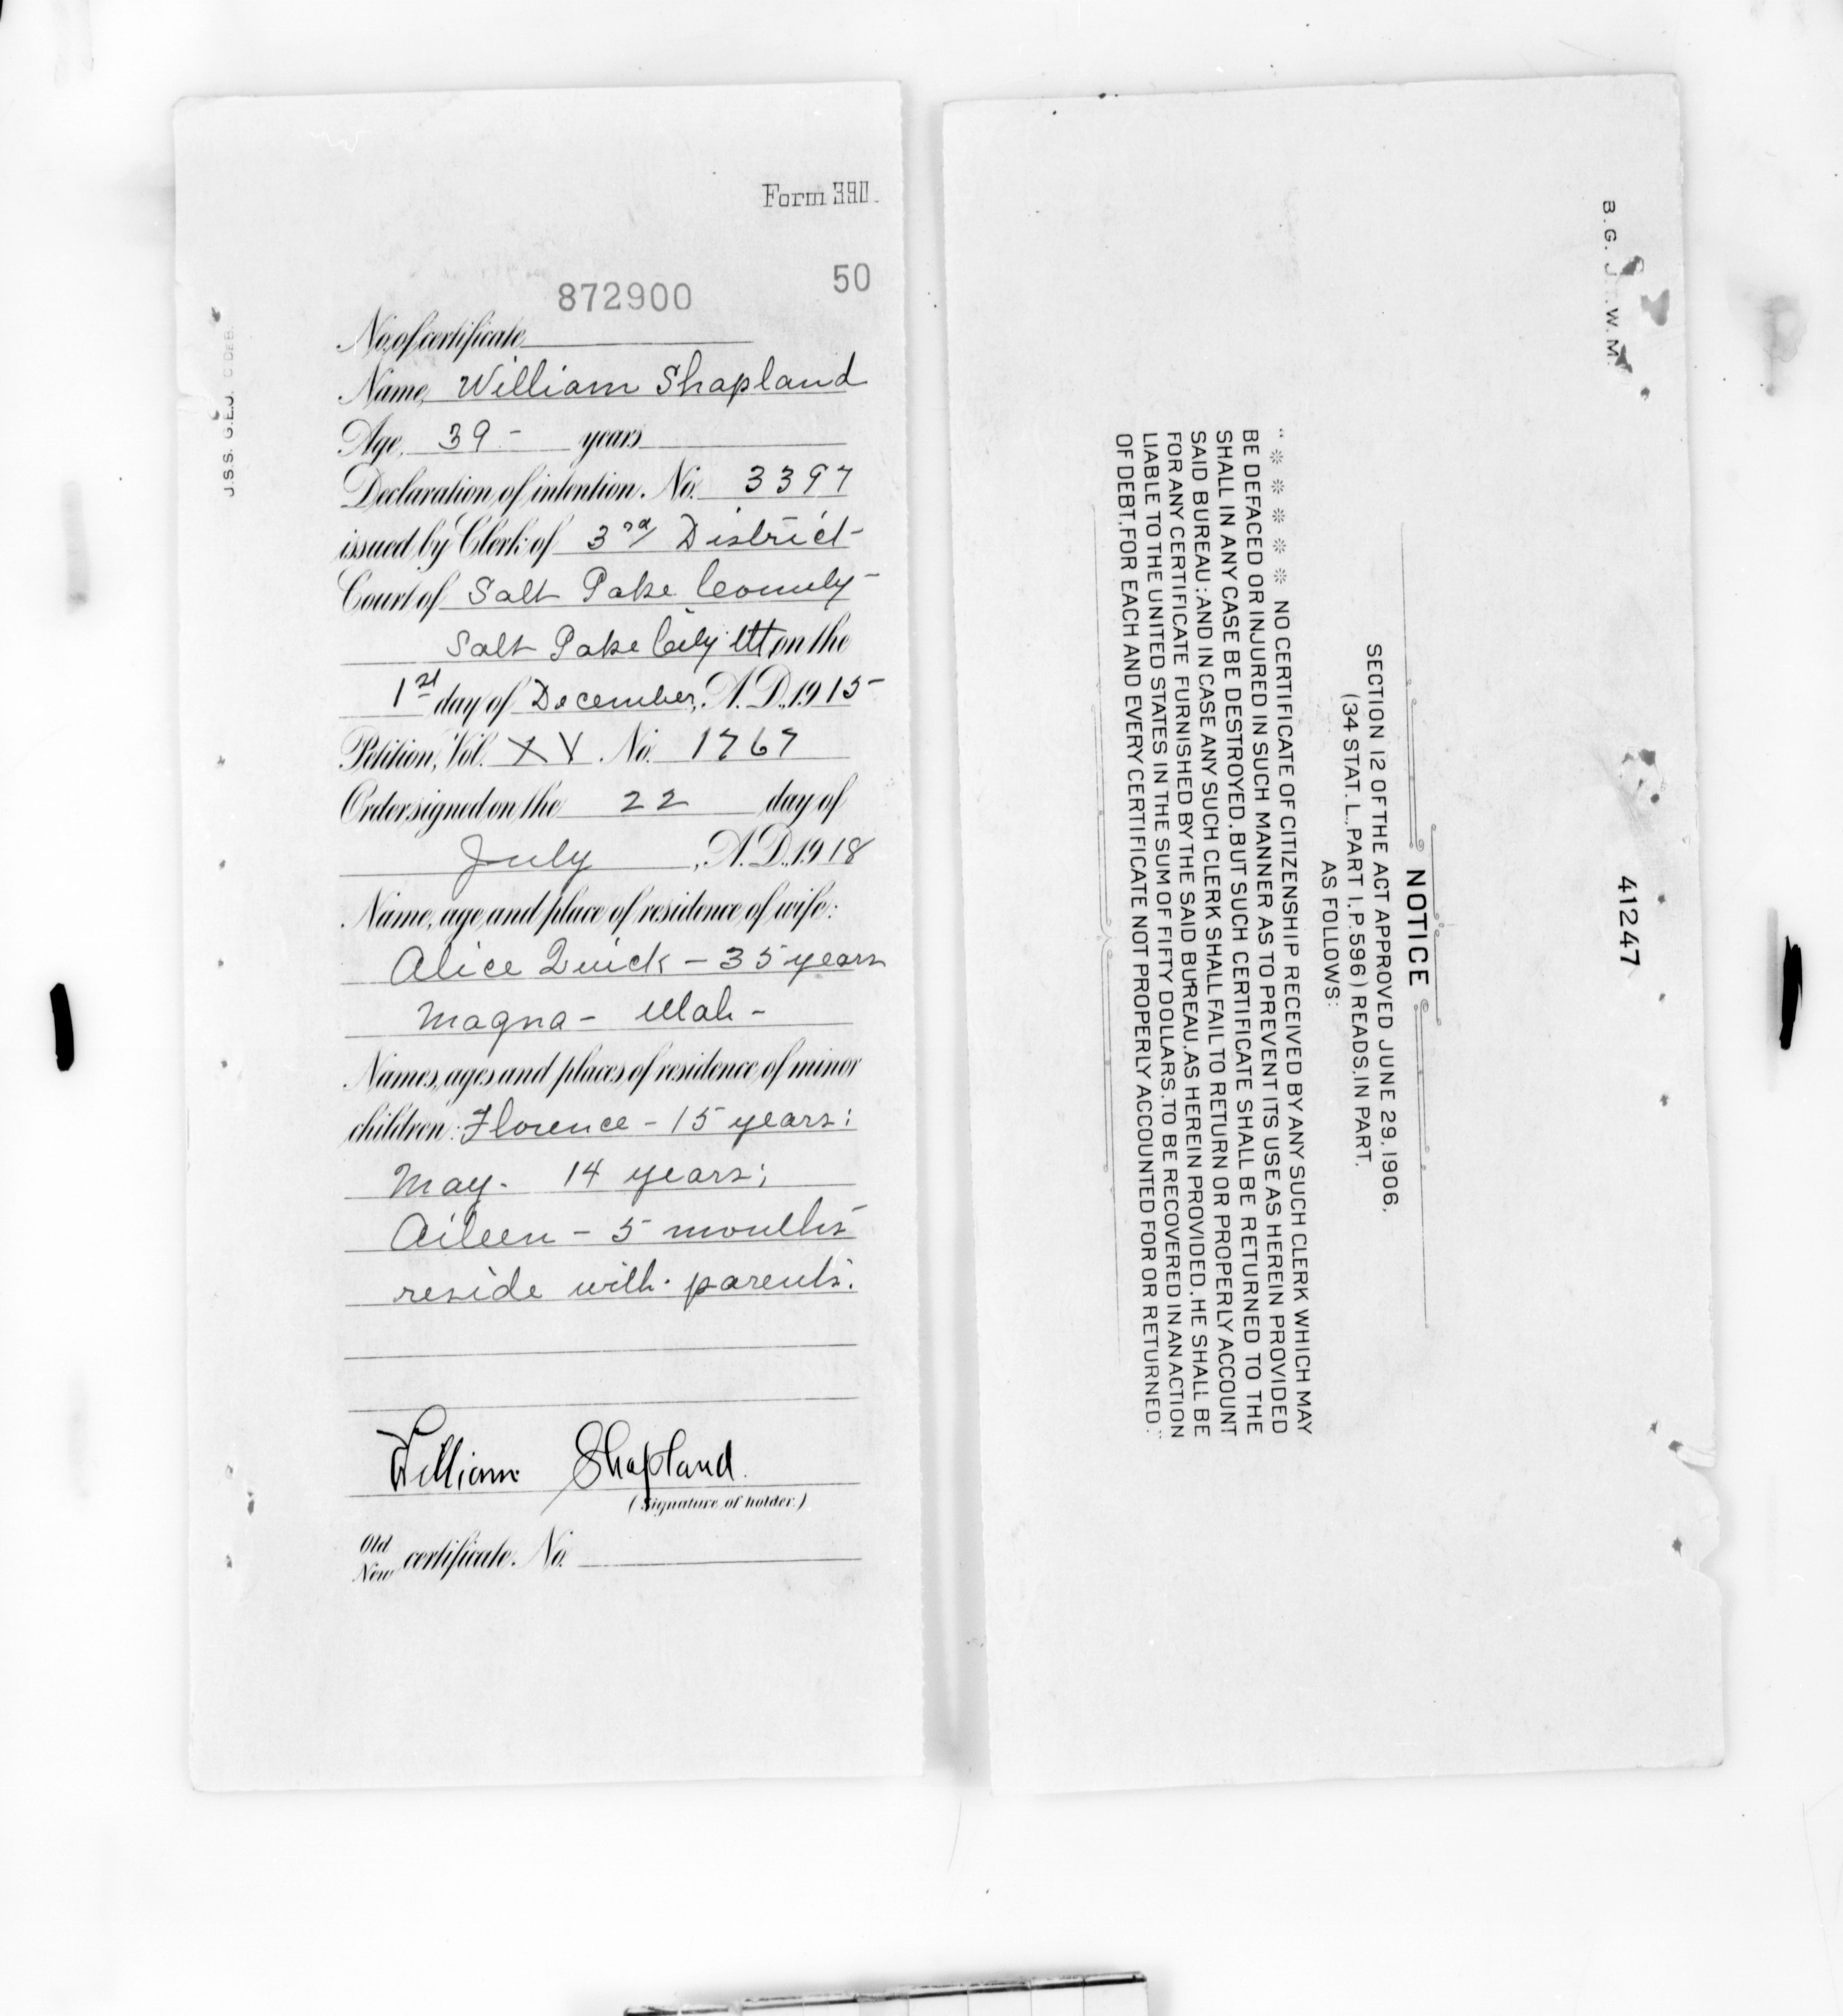 Form 390.
50
872900
No. of certificate
Name, William Shapland
Age, 39 - years
Declaration, of intention. No. 3397
issued, by Clerk of 3rd District
Court of Salt Lake County
Salt Lake City Ut on the
1st day of December, A.D., 1915
Petition, Vol. XV. No. 1767
Order signed on the 22 day of
July, A.D., 1918
Name, age and place of residence of wife:
Alice Quick - 35 years
Magna - Utah -
Names, ages and places of residence of minor
children: Florence - 15 years;
May - 14 years;
Aileen - 5 months
reside with parents.
William Shapland.
(Signature of holder.)
Old
New certificate. No.
B.G. J. W.M.
41247
NOTICE
SECTION 12 OF THE ACT APPROVED JUNE 29, 1906,
(34 STAT. L., PART I, P. 596) READS, IN PART,
AS FOLLOWS:
"※ ※ ※ ※ ※ NO CERTIFICATE OF CITIZENSHIP RECEIVED BY ANY SUCH CLERK WHICH MAY
BE DEFACED OR INJURED IN SUCH MANNER AS TO PREVENT ITS USE AS HEREIN PROVIDED
SHALL IN ANY CASE BE DESTROYED, BUT SUCH CERTIFICATE SHALL BE RETURNED TO THE
SAID BUREAU; AND IN CASE ANY SUCH CLERK SHALL FAIL TO RETURN OR PROPERLY ACCOUNT
FOR ANY CERTIFICATE FURNISHED BY THE SAID BUREAU, AS HEREIN PROVIDED, HE SHALL BE
LIABLE TO THE UNITED STATES IN THE SUM OF FIFTY DOLLARS, TO BE RECOVERED IN AN ACTION
OF DEBT, FOR EACH AND EVERY CERTIFICATE NOT PROPERLY ACCOUNTED FOR OR RETURNED."